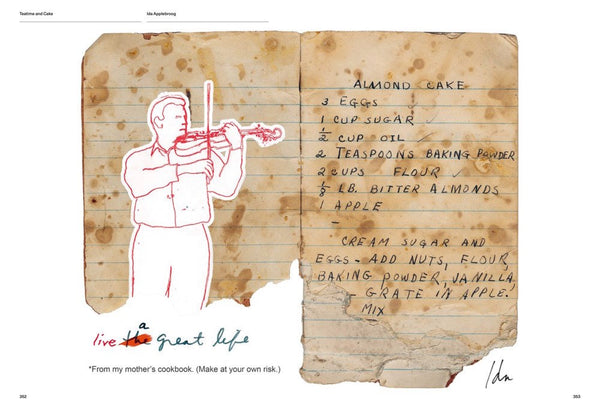 Teatime and Cake
Ida Applebroog
a
live the great life
*From my mother's cookbook. (Make at your own risk.)
352
ALMOND CAKE
3 EGGS
1 CUP SUGAR ✓
½ CUP OIL
2 TEASPOONS BAKING POWDER
2 CUPS FLOUR ✓
⅛ LB. BITTER ALMONDS
1 APPLE
–
CREAM SUGAR AND
EGGS - ADD NUTS, FLOUR,
BAKING POWDER, VANILLA,
- GRATE IN APPLE.
MIX
Ida
353